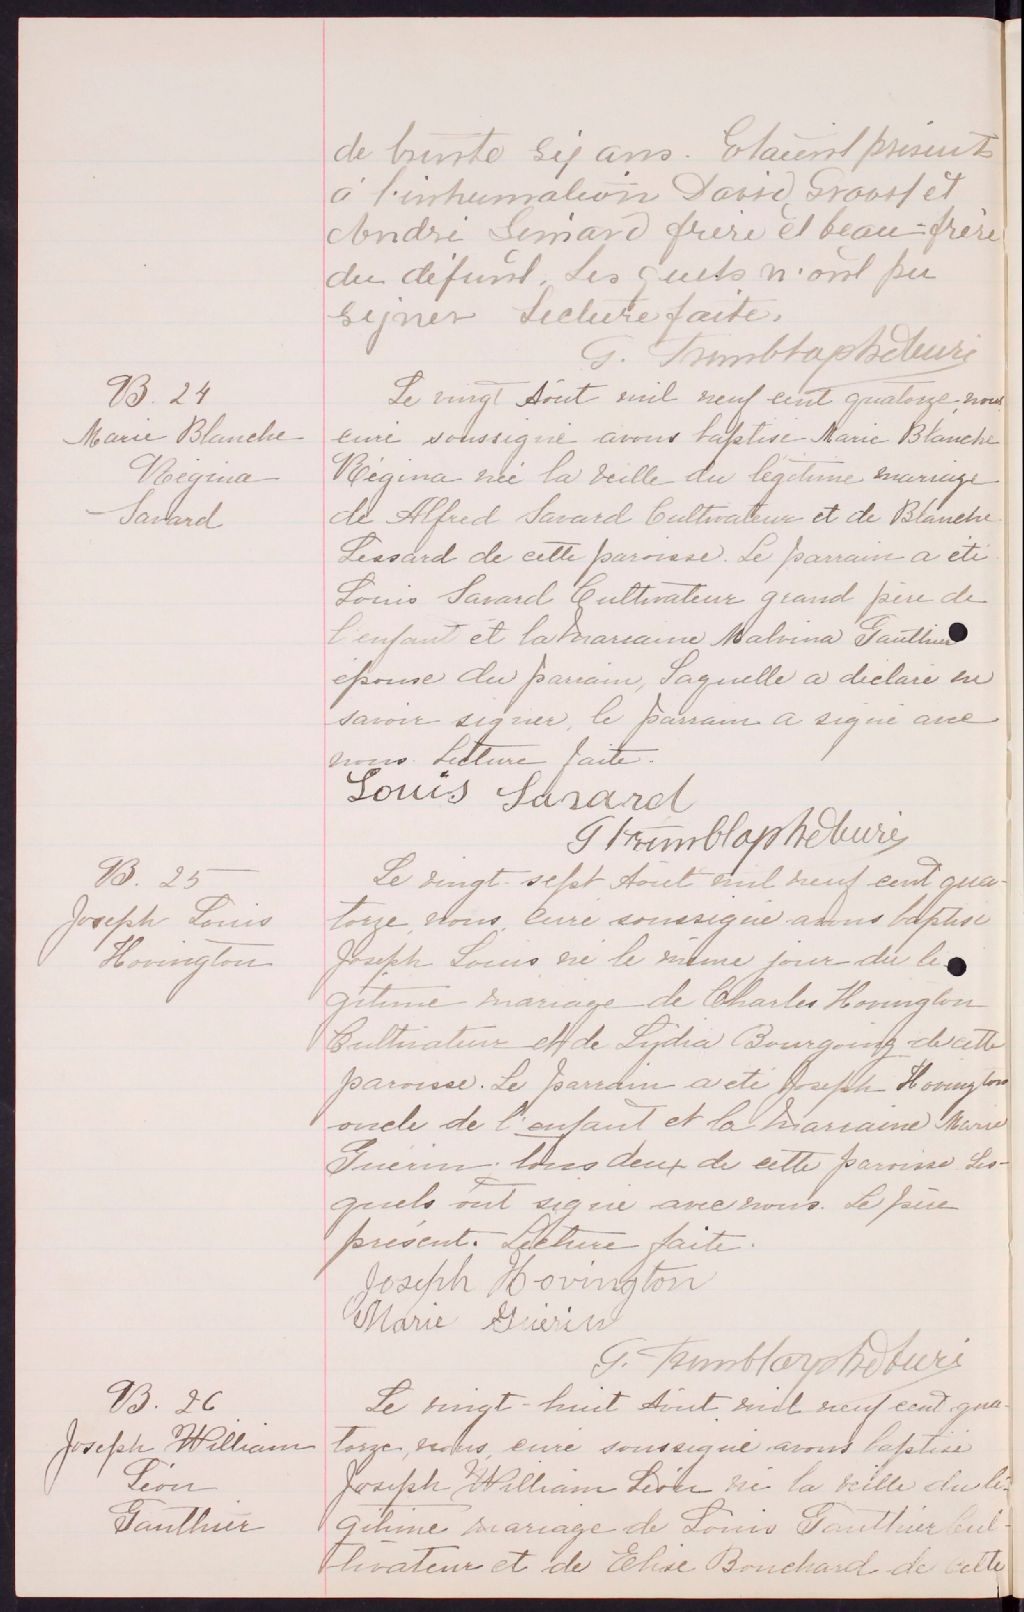 de trente six ans. Etaient présents
à l'inhumation David Proost et
André Simard frère et beau-frère
du défunt, Lesquels n'ont pu
signer Lecture faite.
G. Tremblay ptre curé
B. 24
Marie Blanche
Régina
Savard
Le vingt Août mil neuf cent quatorze, nous
curé soussigné avons baptisé Marie Blanche
Régina née la veille du légitime mariage
de Alfred Savard Cultivateur et de Blanche
Lessard de cette paroisse. Le parrain a été
Louis Savard Cultivateur grand père de
l'enfant et la marraine Malvina Gauthier
épouse du parrain, Laquelle a déclaré ne
savoir signer, le parrain a signé avec
nous. Lecture faite.
Louis Savard
G Tremblay ptre curé
B. 25
Joseph Louis
Hovington
Le vingt-sept Août mil neuf cent qua-
torze, nous, curé soussigné avons baptisé
Joseph Louis né le même jour du lé
gitime mariage de Charles Hovington
Cultivateur et de Lydia Bourgoing de cette
paroisse. Le parrain a été Joseph Hovington
oncle de l'enfant et la marraine Marie
Guérin tous deux de cette paroisse Les-
quels ont signé avec nous. Le père
présent. Lecture faite.
Joseph Hovington
Marie Guérin
G. Tremblay ptre curé
B. 26
Joseph William
Léon
Gauthier
Le vingt-huit Août mil neuf cent qua-
torze, nous, curé soussigné avons baptisé
Joseph William Léon né la veille du lé-
gitime mariage de Louis Gauthier Cul-
tivateur et de Elise Bouchard de cette